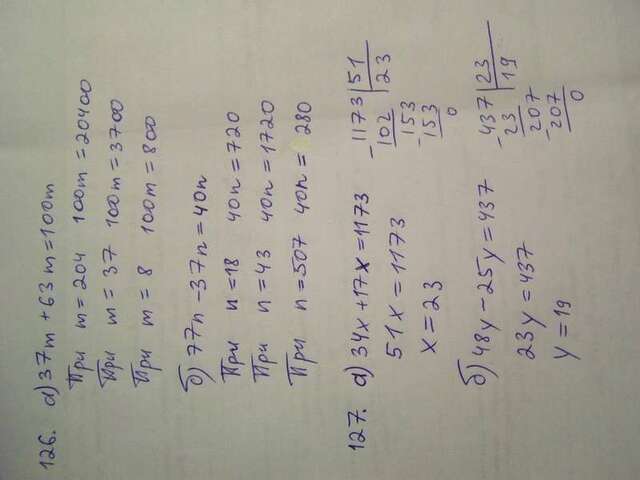 126. а) 37m + 63m = 100m
При m = 204 100m = 20400
При m = 37 100m = 3700
При m = 8 100m = 800
б) 77n - 37n = 40n
При n = 18 40n = 720
При n = 43 40n = 1720
При n = 507 40n = 280
127. а) 34x + 17x = 1173
51x = 1173
x = 23
-1173 | 51
102 | 23
-153
153
0
б) 48y - 25y = 437
23y = 437
y = 19
-437 | 23
23 | 19
-207
207
0